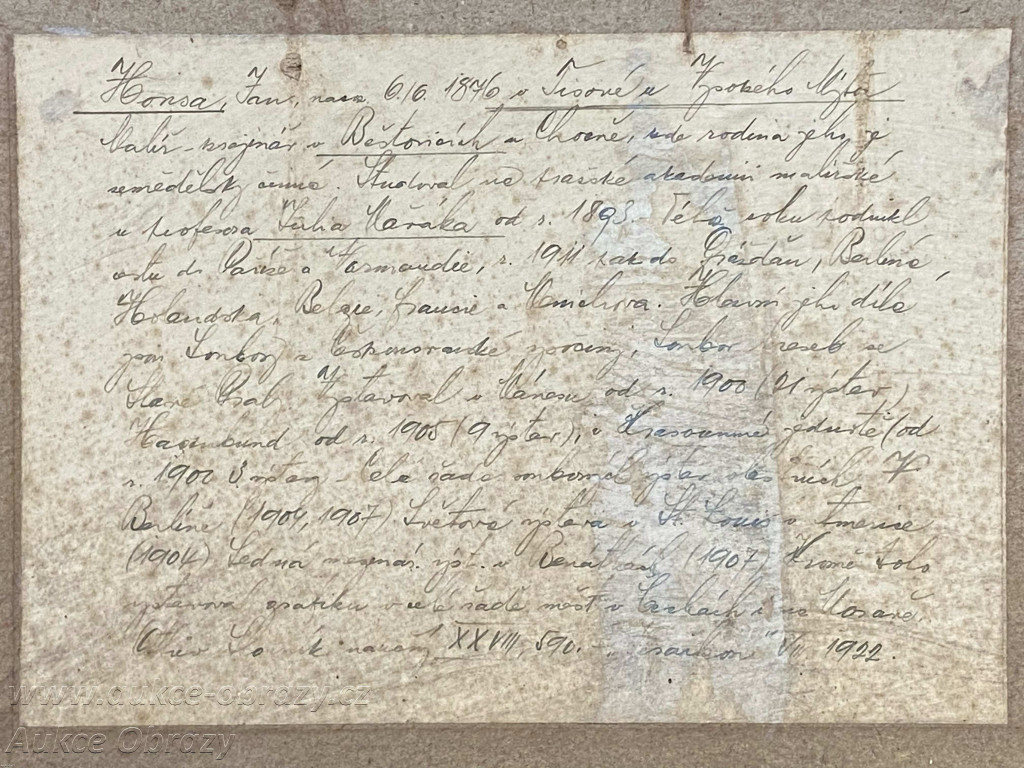 Honsa, Jan, naroz. 6./6. 1876 v Tisové u Vysokého Mýta.
Malíř - krajinář v Běstovicích u Chocně, kde rodina jeho je
zemědělsky činná. Studoval na pražské akademii malířské
u profesora Julia Mařáka od r. 1893. Téhož roku podnikl
cestu do Paříže a Normandie, r. 1911 pak do Drážďan, Berlína,
Holandska, Belgie, Francie a Mnichova. Hlavní jeho díla
jsou Soubory z Českomoravské vysočiny, Soubor kreseb ze
Staré Prahy. Vystavoval v Mánesu od r. 1900 (21 výstav)
Hagenbund od r. 1905 (9 výstav), v Krasoumné jednotě (od
r. 1900 výstav) - Celá řada souborných výstav V
Berlíně (1904, 1907) Světová výstava v St. Louis v Americe
(1904) Sedmá mezinár. výst. v Benátkách (1907) Kromě toho
vystavoval grafiku v celé řadě měst v Čechách i na Moravě.
Ottův Slovník naučný XXVIII, 590. - VII. 1922.
www.aukce-obrazy.cz
Aukce Obrazy